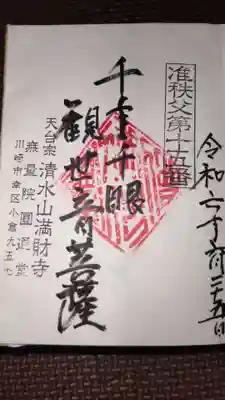 准秩父第十五番
令和六年十一月二十五日
千手千眼
觀世音菩薩
天台宗 清水山満財寺
無量院圓通堂
川崎市幸区小倉九五七